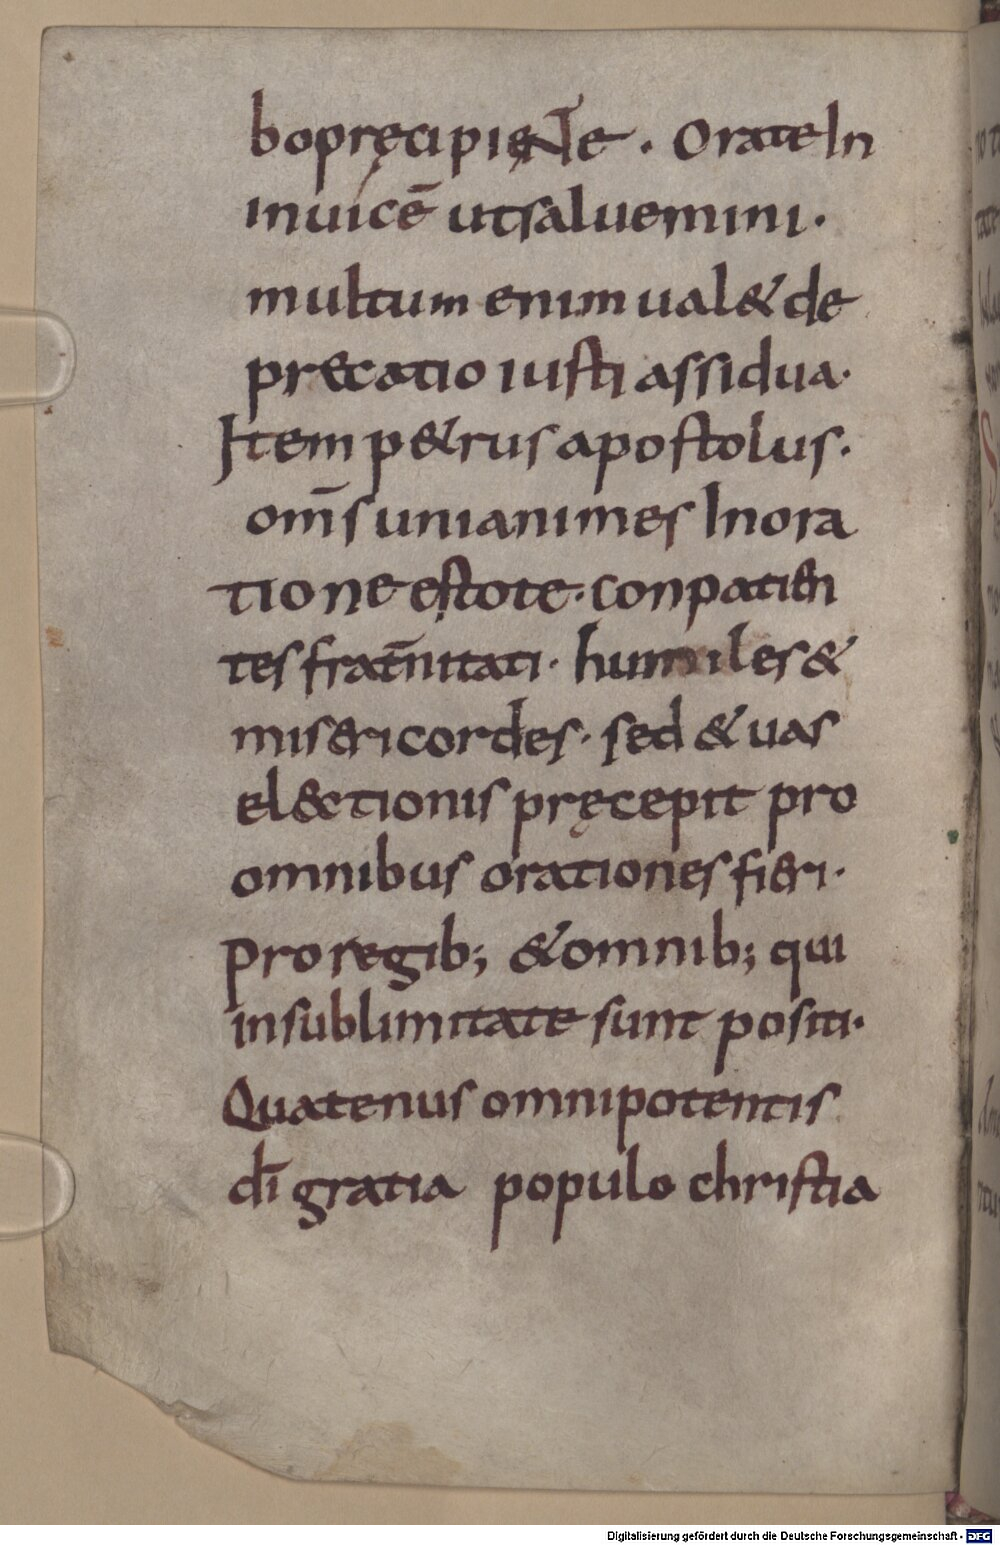 bo pręcipiente . Orate In
inuicē ut saluemini .
multum enim ual& de
precatio iusti assidua .
Item p&rus apostolus .
om̄s unianimes In ora
tione estote . conpatien
tes frat̄nitati . humiles &
misericordes . sed & uas
el&ctionis pręcepit pro
omnibus orationes fieri .
pro regib; & omnib; qui
in sublimitate sunt positi .
Quatenus omnipotentis
dī gratia populo christia
Digitalisierung gefördert durch die Deutsche Forschungsgemeinschaft - DFG